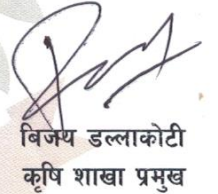 बिजय डल्लाकोटी
कृषि शाखा प्रमुख